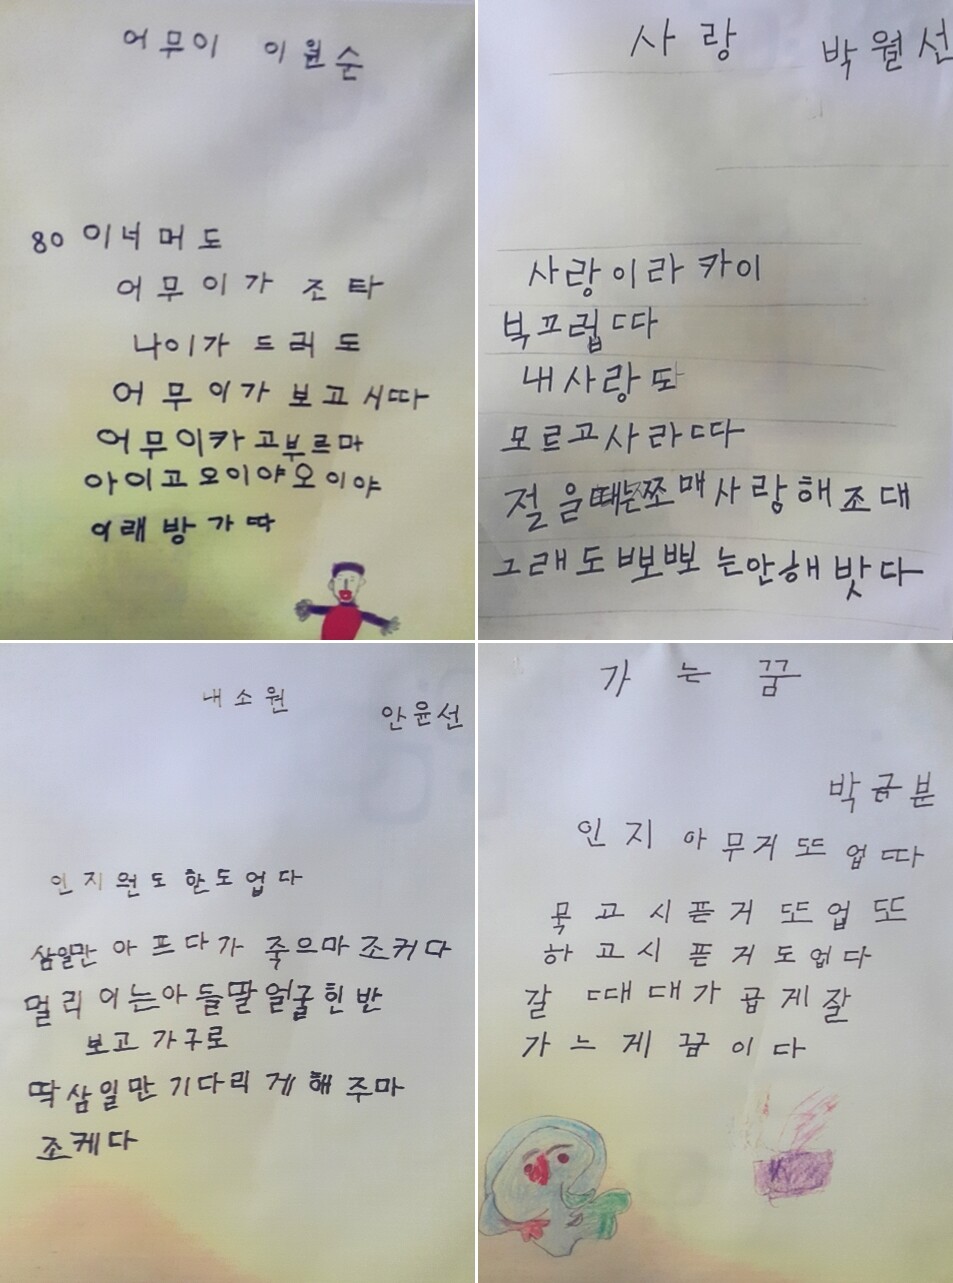 어무이 이원순
80 이너머도
어무이가 조타
나이가 드러도
어무이가 보고시따
어무이카고부르마
아이고오이야오이야
이래방가따
사랑 박월선
사랑이라카이
북끄럽따
내사랑도
모르고사라따
절을때는쪼매사랑해조대
그래도뽀뽀는안해밧다
내소원
안윤선
인지원도한도업다
삼일만아프다가죽으마조커다
멀리이는아들딸얼굴힌반
보고가구로
딱삼일만기다리게해주마
조케다
가는꿈
박금분
인지아무거또업따
묵고시픈거또업또
하고시픈거도업다
갈때대가곱게잘
가느게꿈이다